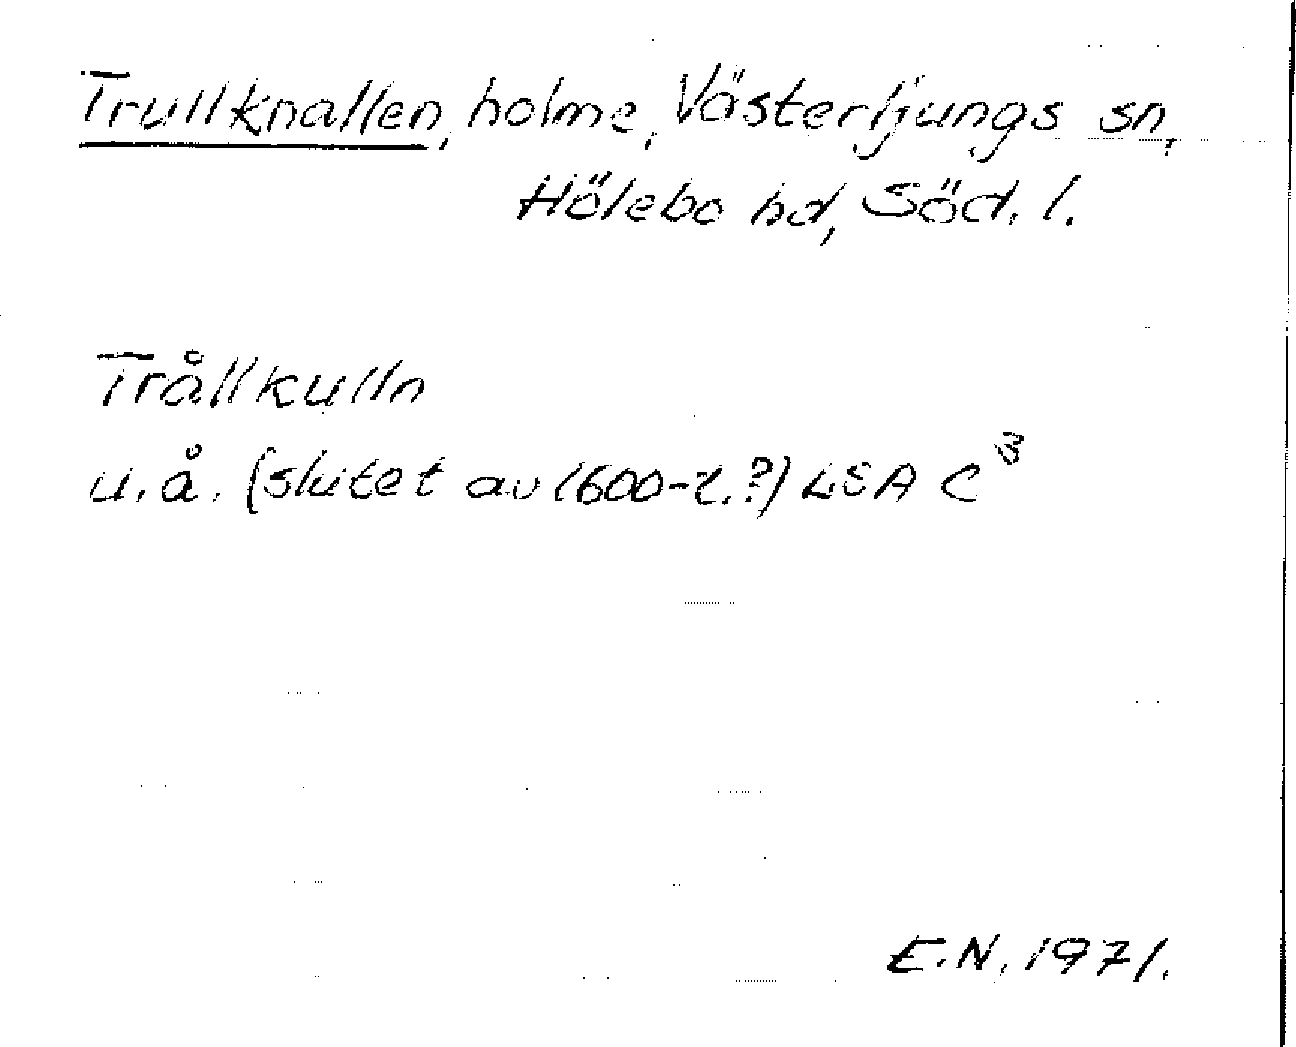 Trullknallen, holme, Västerljungs sn,
Hölebo hd, Söd. l.
Trållkulln
u.å. (slutet av 1600-t.?) LSA C³
E.N. 1971.